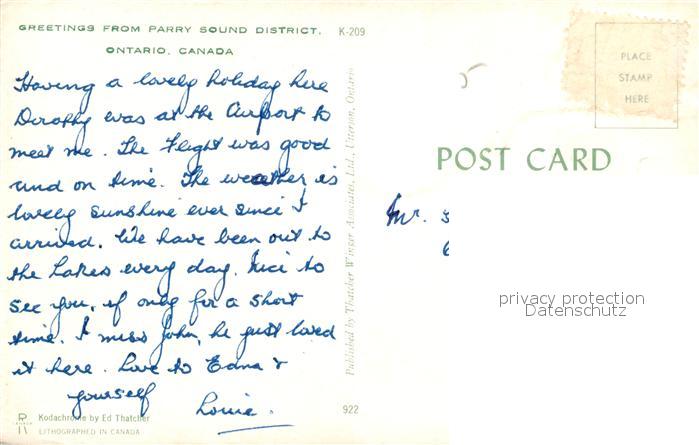 GREETINGS FROM PARRY SOUND DISTRICT,
ONTARIO, CANADA
K-209
Having a lovely holiday here
Dorothy was at the Airport to
meet me. The Flight was good
and on time. The weather is
lovely sunshine ever since I
arrived. We have been out to
the Lakes every day. Nice to
see you, if only for a short
time. I miss John, he just loved
it here. Love to Edna &
yourself
Louie.
Kodachrome by Ed Thatcher
LITHOGRAPHED IN CANADA
922
Published by Thatcher Winger Associates, Ltd., Utterson, Ontario
PLACE
STAMP
HERE
POST CARD
Mr.
privacy protection
Datenschutz